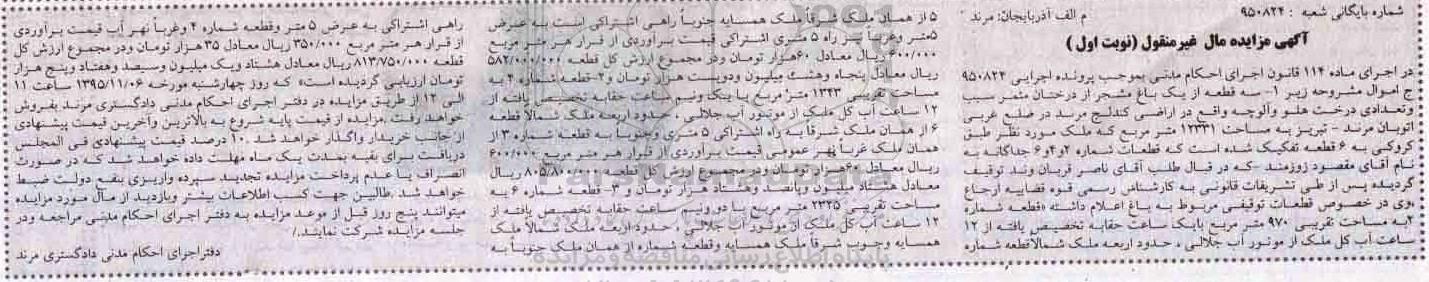 شماره بایگانی شعبه : ۹۵۰۸۲۴ م الف آذربایجان: مرند
آگهی مزایده مال غیرمنقول (نوبت اول)
در اجرای ماده ۱۱۴ قانون اجرای احکام مدنی بموجب پرونده اجرایی ۹۵۰۸۲۴
ج اموال مشروحه زیر ۱- سه قطعه از یک باغ مشجر از درختان مثمر سیب
وتعدادی درخت هلو وآلوچه واقع در اراضی کندلج مرند در ضلع غربی
اتوبان مرند - تبریز به مساحت ۱۲۳۳۱ متر مربع که ملک مورد نظر طبق
کروکی به ۶ قطعه تفکیک شده است که قطعات شماره ۲و۴و۶ جداگانه به
نام آقای مقصود زوزمند -که در قبال طلب آقای ناصر قربان وند توقیف
گردیده پس از طی تشریفات قانونی به کارشناس رسمی قوه قضاییه ارجاع
،وی در خصوص قطعات توقیفی مربوط به باغ اعلام داشته «قطعه شماره
۲به مساحت تقریبی ۹۷۰ متر مربع بایک ساعت حقابه تخصیص یافته از ۱۲
ساعت آب کل ملک از موتور آب جلالی ، حدود اربعه ملک شمالاقطعه شماره
۵ از همان ملک شرقاً ملک همسایه جنوباً راهی اشتراکی است به عرض
۵متر وغرباً نیز راه ۵ متری اشتراکی قیمت برآوردی از قرار هر متر مربع
۶۰۰/۰۰۰ریال معادل ۶۰هزار تومان ودر مجموع ارزش کل قطعه ۵۸۲/۰۰۰/۰۰۰
ریال معادل پنجاه وهشت میلیون ودویست هزار تومان و۲-قطعه شماره ۴ به
مساحت تقریبی ۱۳۴۳ متر مربع با یک ونیم ساعت حقابه تخصیص یافته از
۱۲ ساعت آب کل ملک از موتور آب جلالی ، حدود اربعه ملک شمالا قطعه
۶ از همان ملک شرقاً به راه اشتراکی ۵ متری وجنوباً به قطعه شماره ۳ از
همان ملک غرباً نهر عمومی قیمت برآوردی از قرار هر متر مربع ۶۰۰/۰۰۰
ریال معادل ۶۰هزار تومان ودر مجموع ارزش کل قطعه ۸۰۵/۸۰۰/۰۰۰ ریال
معادل هشتاد میلیون وپانصد وهشتاد هزار تومان و ۳- قطعه شماره ۶ به
مساحت تقریبی ۲۳۲۵ متر مربع با دو ونیم ساعت حقابه تخصیص یافته از
۱۲ ساعت آب کل ملک از موتور آب جلالی ، حدود اربعه ملک شمالا ملک
همسایه وجوب شرقاً ملک همسایه وقطعه شماره از همان ملک جنوباً به
راهی اشتراکی به عرض ۵ متر وقطعه شماره ۴ وغرباً نهر آب قیمت برآوردی
از قرار هر متر مربع ۳۵۰/۰۰۰ ریال معادل ۳۵ هزار تومان ودر مجموع ارزش کل
قطعه ۸۱۳/۷۵۰/۰۰۰ ریال معادل هشتاد ویک میلیون وسیصد وهفتاد وپنج هزار
تومان ارزیابی گردیده است» که روز چهارشنبه مورخه ۱۳۹۵/۱۱/۰۶ ساعت ۱۱
الی ۱۲ از طریق مزایده در دفتر اجرای احکام مدنی دادگستری مرند بفروش
خواهد رفت .مزایده از قیمت پایه شروع به بالاترین وآخرین قیمت پیشنهادی
از جانب خریدار واگذار خواهد شد .۱۰ درصد قیمت پیشنهادی فی المجلس
دریافت برای بقیه بمدت یک ماه مهلت داده خواهد شد که در صورت
انصراف یا عدم پرداخت مزایده تجدید سپرده واریزی بنفع دولت ضبط
خواهد شد .طالبین جهت کسب اطلاعات بیشتر وبازدید از مال مورد مزایده
میتوانند پنج روز قبل از موعد مزایده به دفتر اجرای احکام مدنی مراجعه ودر
جلسه مزایده شرکت نمایند./
دفتراجرای احکام مدنی دادگستری مرند
پایگاه اطلاع رسانی مناقصه و مزایده